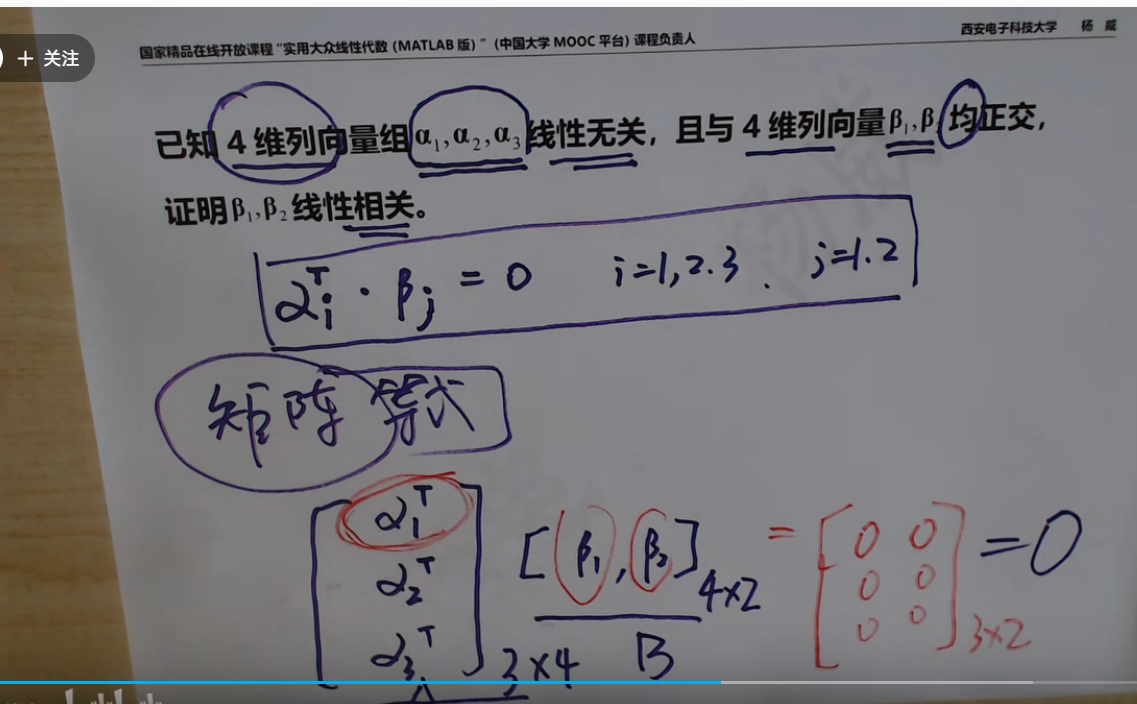 国家精品在线开放课程“实用大众线性代数（MATLAB 版）”（中国大学 MOOC 平台）课程负责人
西安电子科技大学 杨 威
+ 关注
已知 4 维列向量组 α₁,α₂,α₃ 线性无关，且与 4 维列向量 β₁,β 均正交，
证明 β₁,β₂ 线性相关。
αᵢᵀ · βⱼ = 0 i=1,2.3 . j=1.2
矩阵等式
α₁ᵀ
α₂ᵀ [β₁,β₂]₄ₓ₂ = [0 0 0 0 0 0]₃ₓ₂ = 0
α₃ᵀ 3×4 B